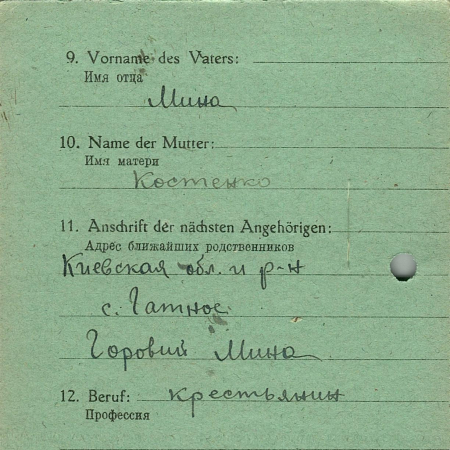 9. Vorname des Vaters:
Имя отца
Мина
10. Name der Mutter:
Имя матери
Костенко
11. Anschrift der nächsten Angehörigen:
Адрес ближайших родственников
Киевская обл. и р-н
с. Гатное
Горовий Мина
12. Beruf: крестьянин
Профессия